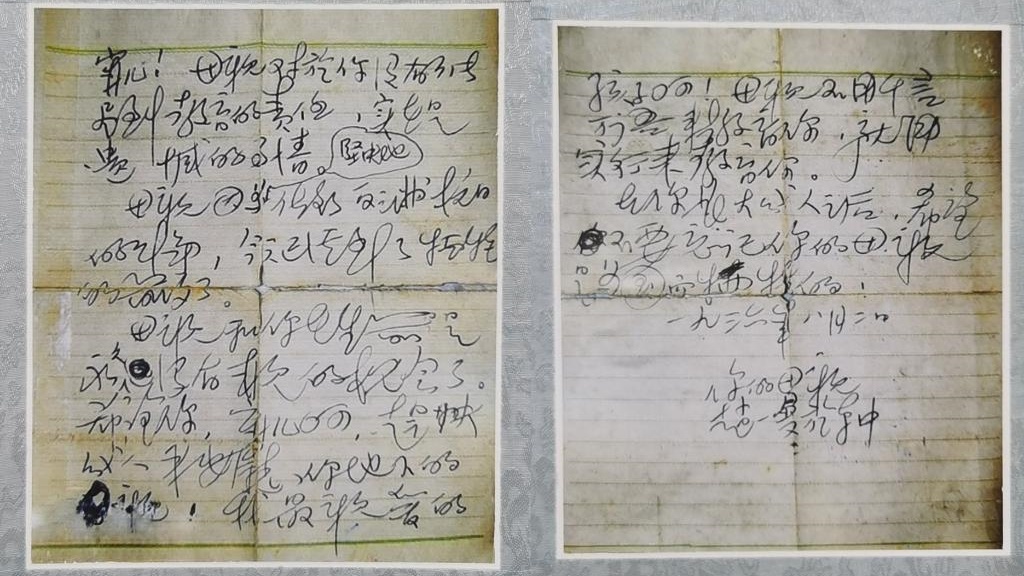 寧儿!母亲对於你没有能尽
到教育的责任,实在是
遗憾的事情。坚决地
母亲因为做了反满抗日
的斗争,今天已经到了牺牲
的前夕了。
母亲和你在生前是
永久没有再见的机会了。
希望你,宁儿啊!赶快
成人,来安慰你地下的
母亲!我最亲爱的
孩子啊!母亲不用千言
万语来教育你,就用
实行来教育你。
在你长大成人之后,希望
不要忘记你的母亲
是为国而牺牲的!
一九三六年八月二日
你的母亲
赵一曼於车中